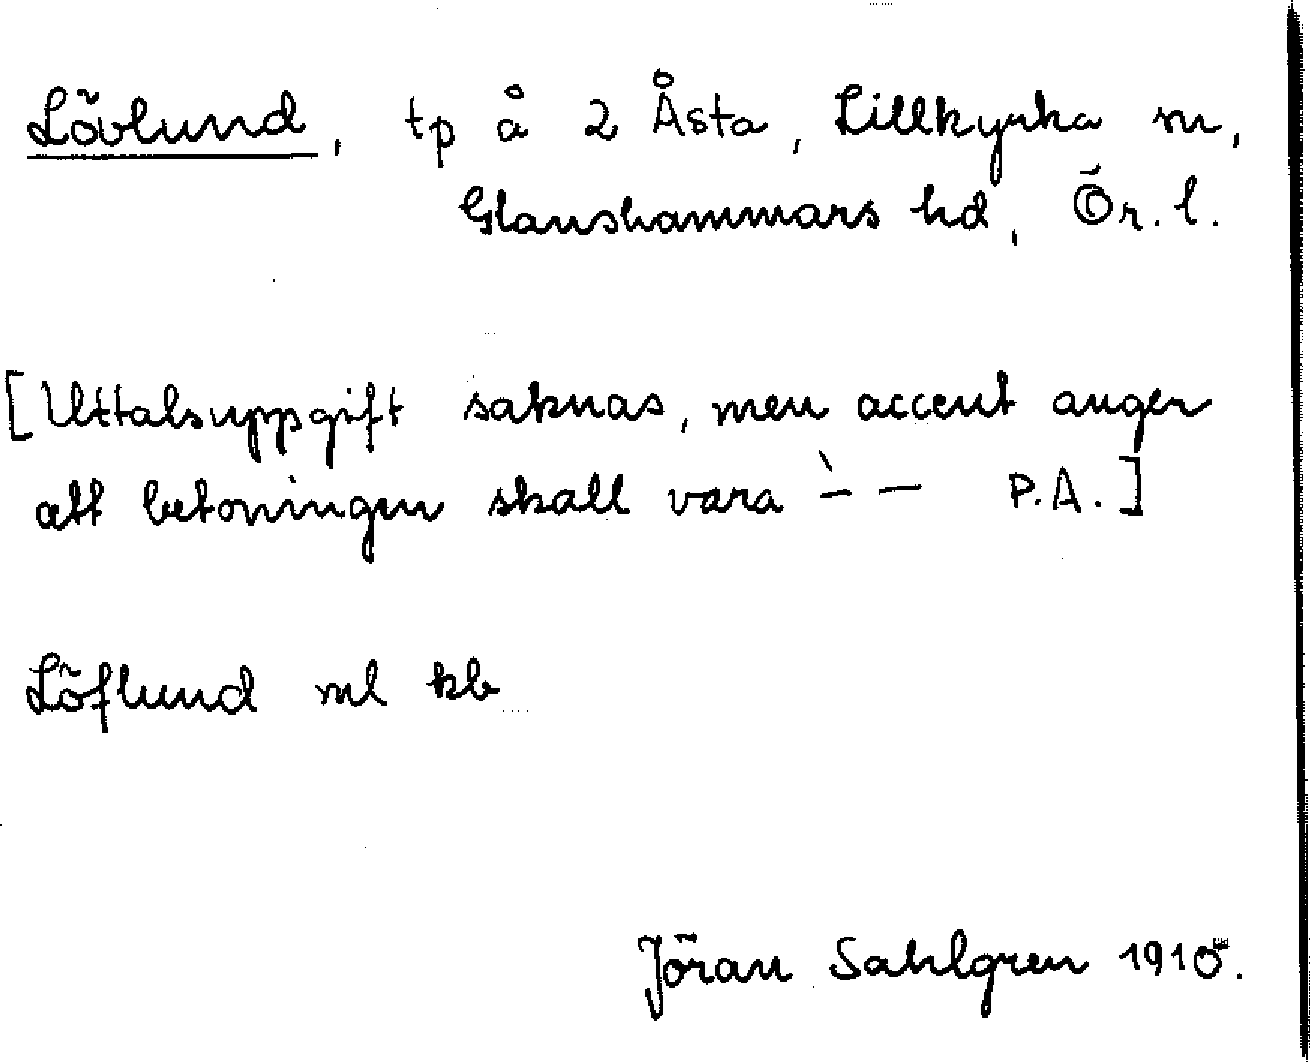 Lövlund, tp å 2 Åsta, Lillkyrka sn,
Glanshammars hd, Ör. l.
[Uttalsuppgift saknas, men accent anger
att betoningen skall vara –̀ – P.A.]
Löflund ml kb
Jöran Sahlgren